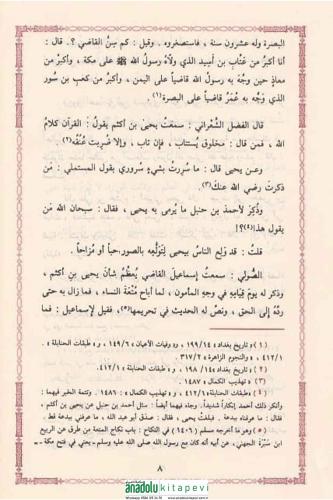 البصرة وله عشرون سنة ، فاستصغروه . وقيل : كم سِنُّ القاضي ؟. قال :
أنا أكبرُ من عَتَّابِ بن أَسِيد الذي ولَّاهُ رسولُ الله ﷺ على مكة ، وأكبرُ من
معاذٍ حين وجَّه به رسولُ الله قاضياً على اليمن ، وأكبرُ من كعبِ بن سُور
الذي وَجَّه به عُمَرُ قاضياً على البصرة(١).
قال الفضل الشَّعْراني : سمعتُ يحيى بن أكثم يقولُ : القرآن كلامُ
الله ، فمن قال : مخلوق يُستتاب ، فإن تاب ، وإلا ضُربت عُنُقُه(٢).
وعن يحيى قال : ما سُرِرْتُ بشيءٍ سُروري بقولِ المستملي : مَن
ذكرتَ رضي الله عنكَ(٣).
وذُكِرَ لأحمدَ بن حنبل ما يُرمى به يحيى ، فقال : سبحان الله مَن
يقول هذا(٤)؟!
قلتُ : قد وَلِعَ الناسُ بيحيى لِتَوَلُّعِهِ بالصور،حباً أو مُزاحاً .
الصُّولي : سمعتُ إسماعيلَ القاضي يُعظِّمُ شأنَ يحيى بنِ أكثم ،
وذكر له يومَ قِيامِهِ في وجهِ المأمون ، لما أباحَ مُتْعَة النساء ، فما زال به حتى
ردَّهُ إلى الحق ، ونصَّ له الحديث في تحريمها(٥)، فقيل لإِسماعيل : فما
(١) « تاريخ بغداد » ١٩٩/١٤ ، و« وفيات الأعيان » ١٤٩/٦ ، و« طبقات الحنابلة »
٤١٢/١ ، و« النجوم الزاهرة » ٣١٧/٢ .
(٢) « تاريخ بغداد » ١٩٨/١٤ ، و« طبقات الحنابلة » ٤١٢/١ .
(٣) « تهذيب الكمال » ١٤٨٧ .
(٤) « طبقات الحنابلة » ٤١٢/١ ، و« تهذيب الكمال » : ١٤٨٦ . وتتمة الخبر فيهما :
وأنكر ذلك أحمد إنكاراً شديداً . وجاء فيهما أيضاً : سئل أحمد بن حنبل عن يحيى بن أكثم ،
فقال : ما عرفناه ببدعة . فبلغت يحيى ، فقال : صدق أبو عبد الله ، ما عرفني ببدعة قط .
(٥) وهو ما أخرجه مسلم (١٤٠٦) في النكاح : باب نكاح المتعة من طرق عن الربيع
ابن سَبْرَة الجهني، عن أبيه أنه كان مع رسول الله صلى الله عليه وسلم-يعني في فتح مكة -
٨
anadolukitapevi